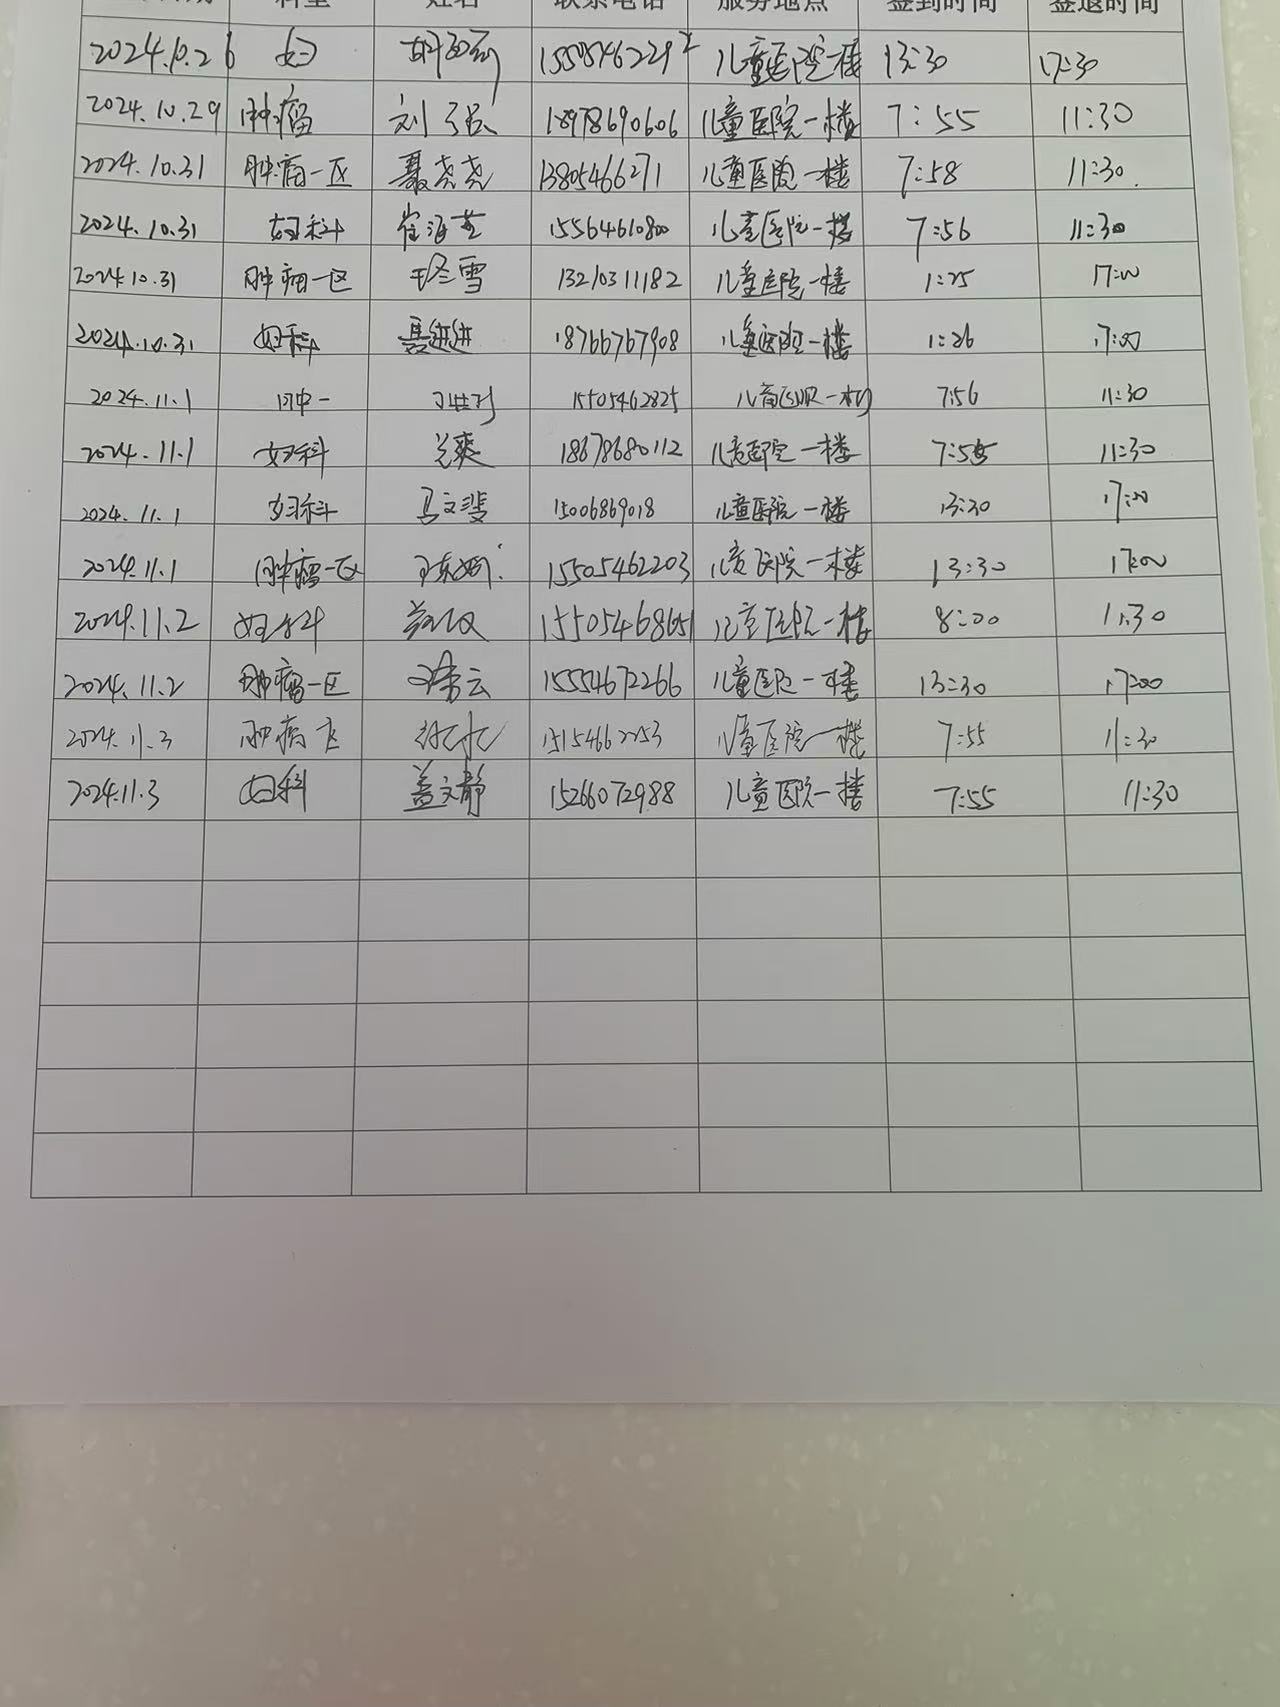 科室 姓名 联系电话 服务地点 签到时间 签退时间
2024.10.26 妇 15505462292 儿童医院一楼 13:30 17:30
2024.10.29 肿瘤 刘强 18978690606 儿童医院一楼 7:55 11:30
2024.10.31 肿瘤一区 聂尧尧 13805466271 儿童医院一楼 7:58 11:30.
2024.10.31 妇科 崔海燕 15564610800 儿童医院一楼 7:56 11:30
2024.10.31 肿瘤一区 冬雪 13210311182 儿童医院一楼 1:25 17:00
2024.10.31 妇科 聂进进 18766767908 儿童医院一楼 1:26 17:00
2024.11.1 肿一 15505462825 儿童医院一楼 7:56 11:30
2024.11.1 妇科 兰爽 18678680112 儿童医院一楼 7:55 11:30
2024.11.1 妇科 马文斐 15006869018 儿童医院一楼 13:30 17:00
2024.11.1 肿瘤一区 15505462203 儿童医院一楼 13:30 17:00
2024.11.2 妇科 15505468651 儿童医院一楼 8:00 11:30
2024.11.2 肿瘤一区 云 15554672266 儿童医院一楼 13:30 17:00
2024.11.3 肿瘤 15154662253 儿童医院一楼 7:55 11:30
2024.11.3 妇科 盖文静 15266072988 儿童医院一楼 7:55 11:30